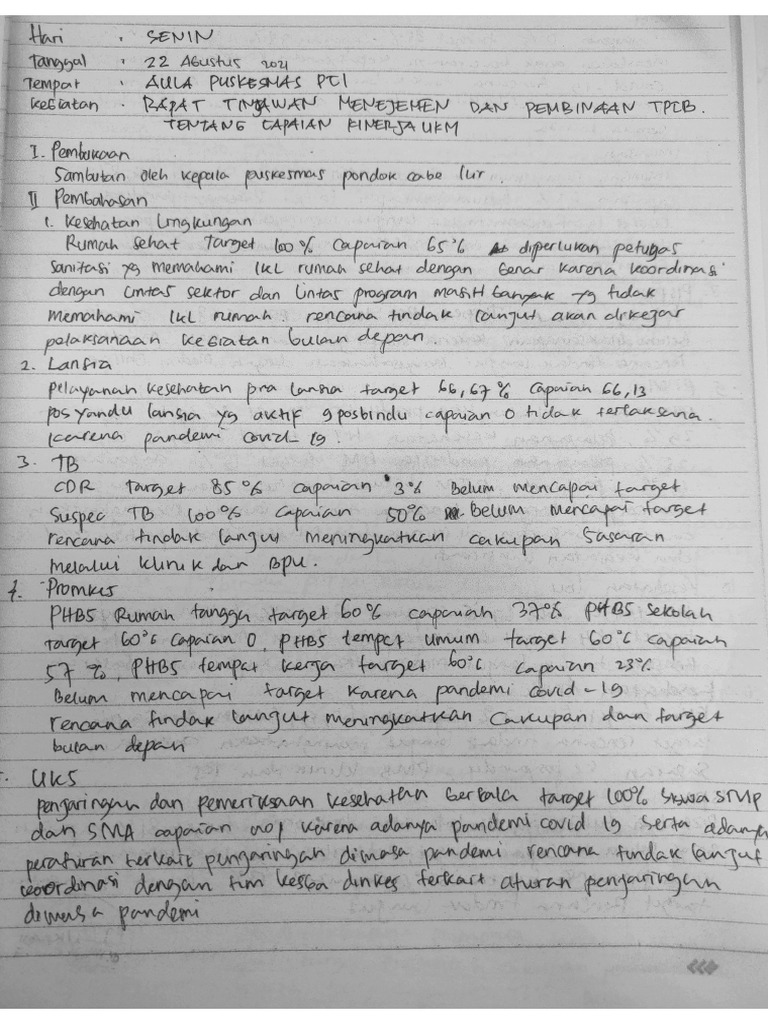 Hari : SENIN
Tanggal : 22 Agustus 2021
Tempat : AULA PUSKESMAS PCI
Kegiatan : RAPAT TINJAWAN MENEJEMEN DAN PEMBINAAN TPCB.
TENTANG CAPAIAN KINERJA UKM
I. Pembukaan
Sambutan oleh kepala puskesmas pondok cabe Ilir.
II Pembahasan
1. Kesehatan Lingkungan
Rumah sehat target 100% capaian 65% diperlukan petugas
sanitasi yg memahami IKL rumah sehat dengan benar karena koordinasi
dengan lintas sektor dan lintas program masih banyak yg tidak
memahami IKL rumah. rencana tindak langut akan dikejar
pelaksanaan kegiatan bulan depan.
2. Lansia
pelayanan kesehatan pra lansia target 66,67% capaian 66,13
posyandu lansia yg aktif 9 posbindu capaian 0 tidak terlaksana.
karena pandemi covid-19
3. TB
CDR target 85% capaian 3% Belum mencapai target
Suspec TB 100% capaian 50% Belum mencapai target
rencana tindak langut meningkatkan cakupan sasaran
melalui klinik dan BPU.
4. Promkes
PHBS Rumah tangga target 60% capaian 37% PHBS sekolah
target 60% capaian 0, PHBS tempat umum target 60% capaian
57%, PHBS tempat kerja target 60% capaian 23%
Belum mencapai target karena pandemi covid-19
rencana tindak langut meningkatkan cakupan dan target
bulan depan
UKS
penjaringan dan pemeriksaan kesehatan berkala target 100% siswa SMP
dan SMA capaian karena adanya pandemi covid 19 serta adanya
peraturan terkait penjaringan dimasa pandemi rencana tindak langut
koordinasi dengan tim kesga dinkes terkait aturan penjaringan
dimasa pandemi